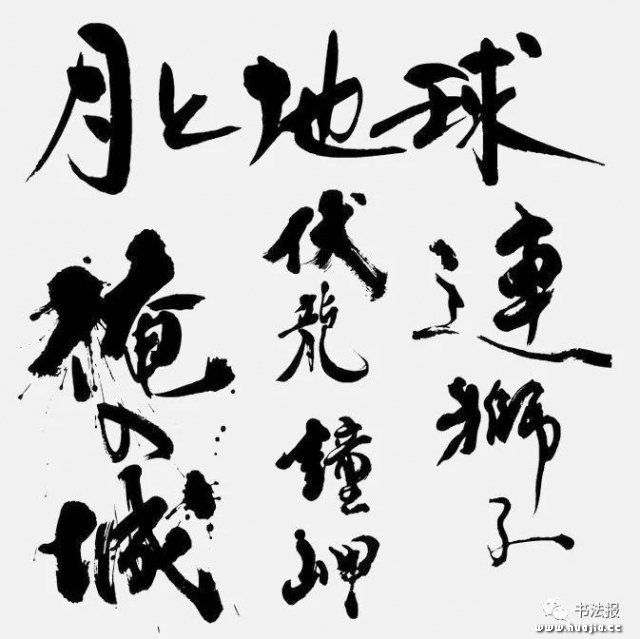 月と地球
連獅子
伏龍
鐘岬
俺の城
书法报
www.huajia.cc